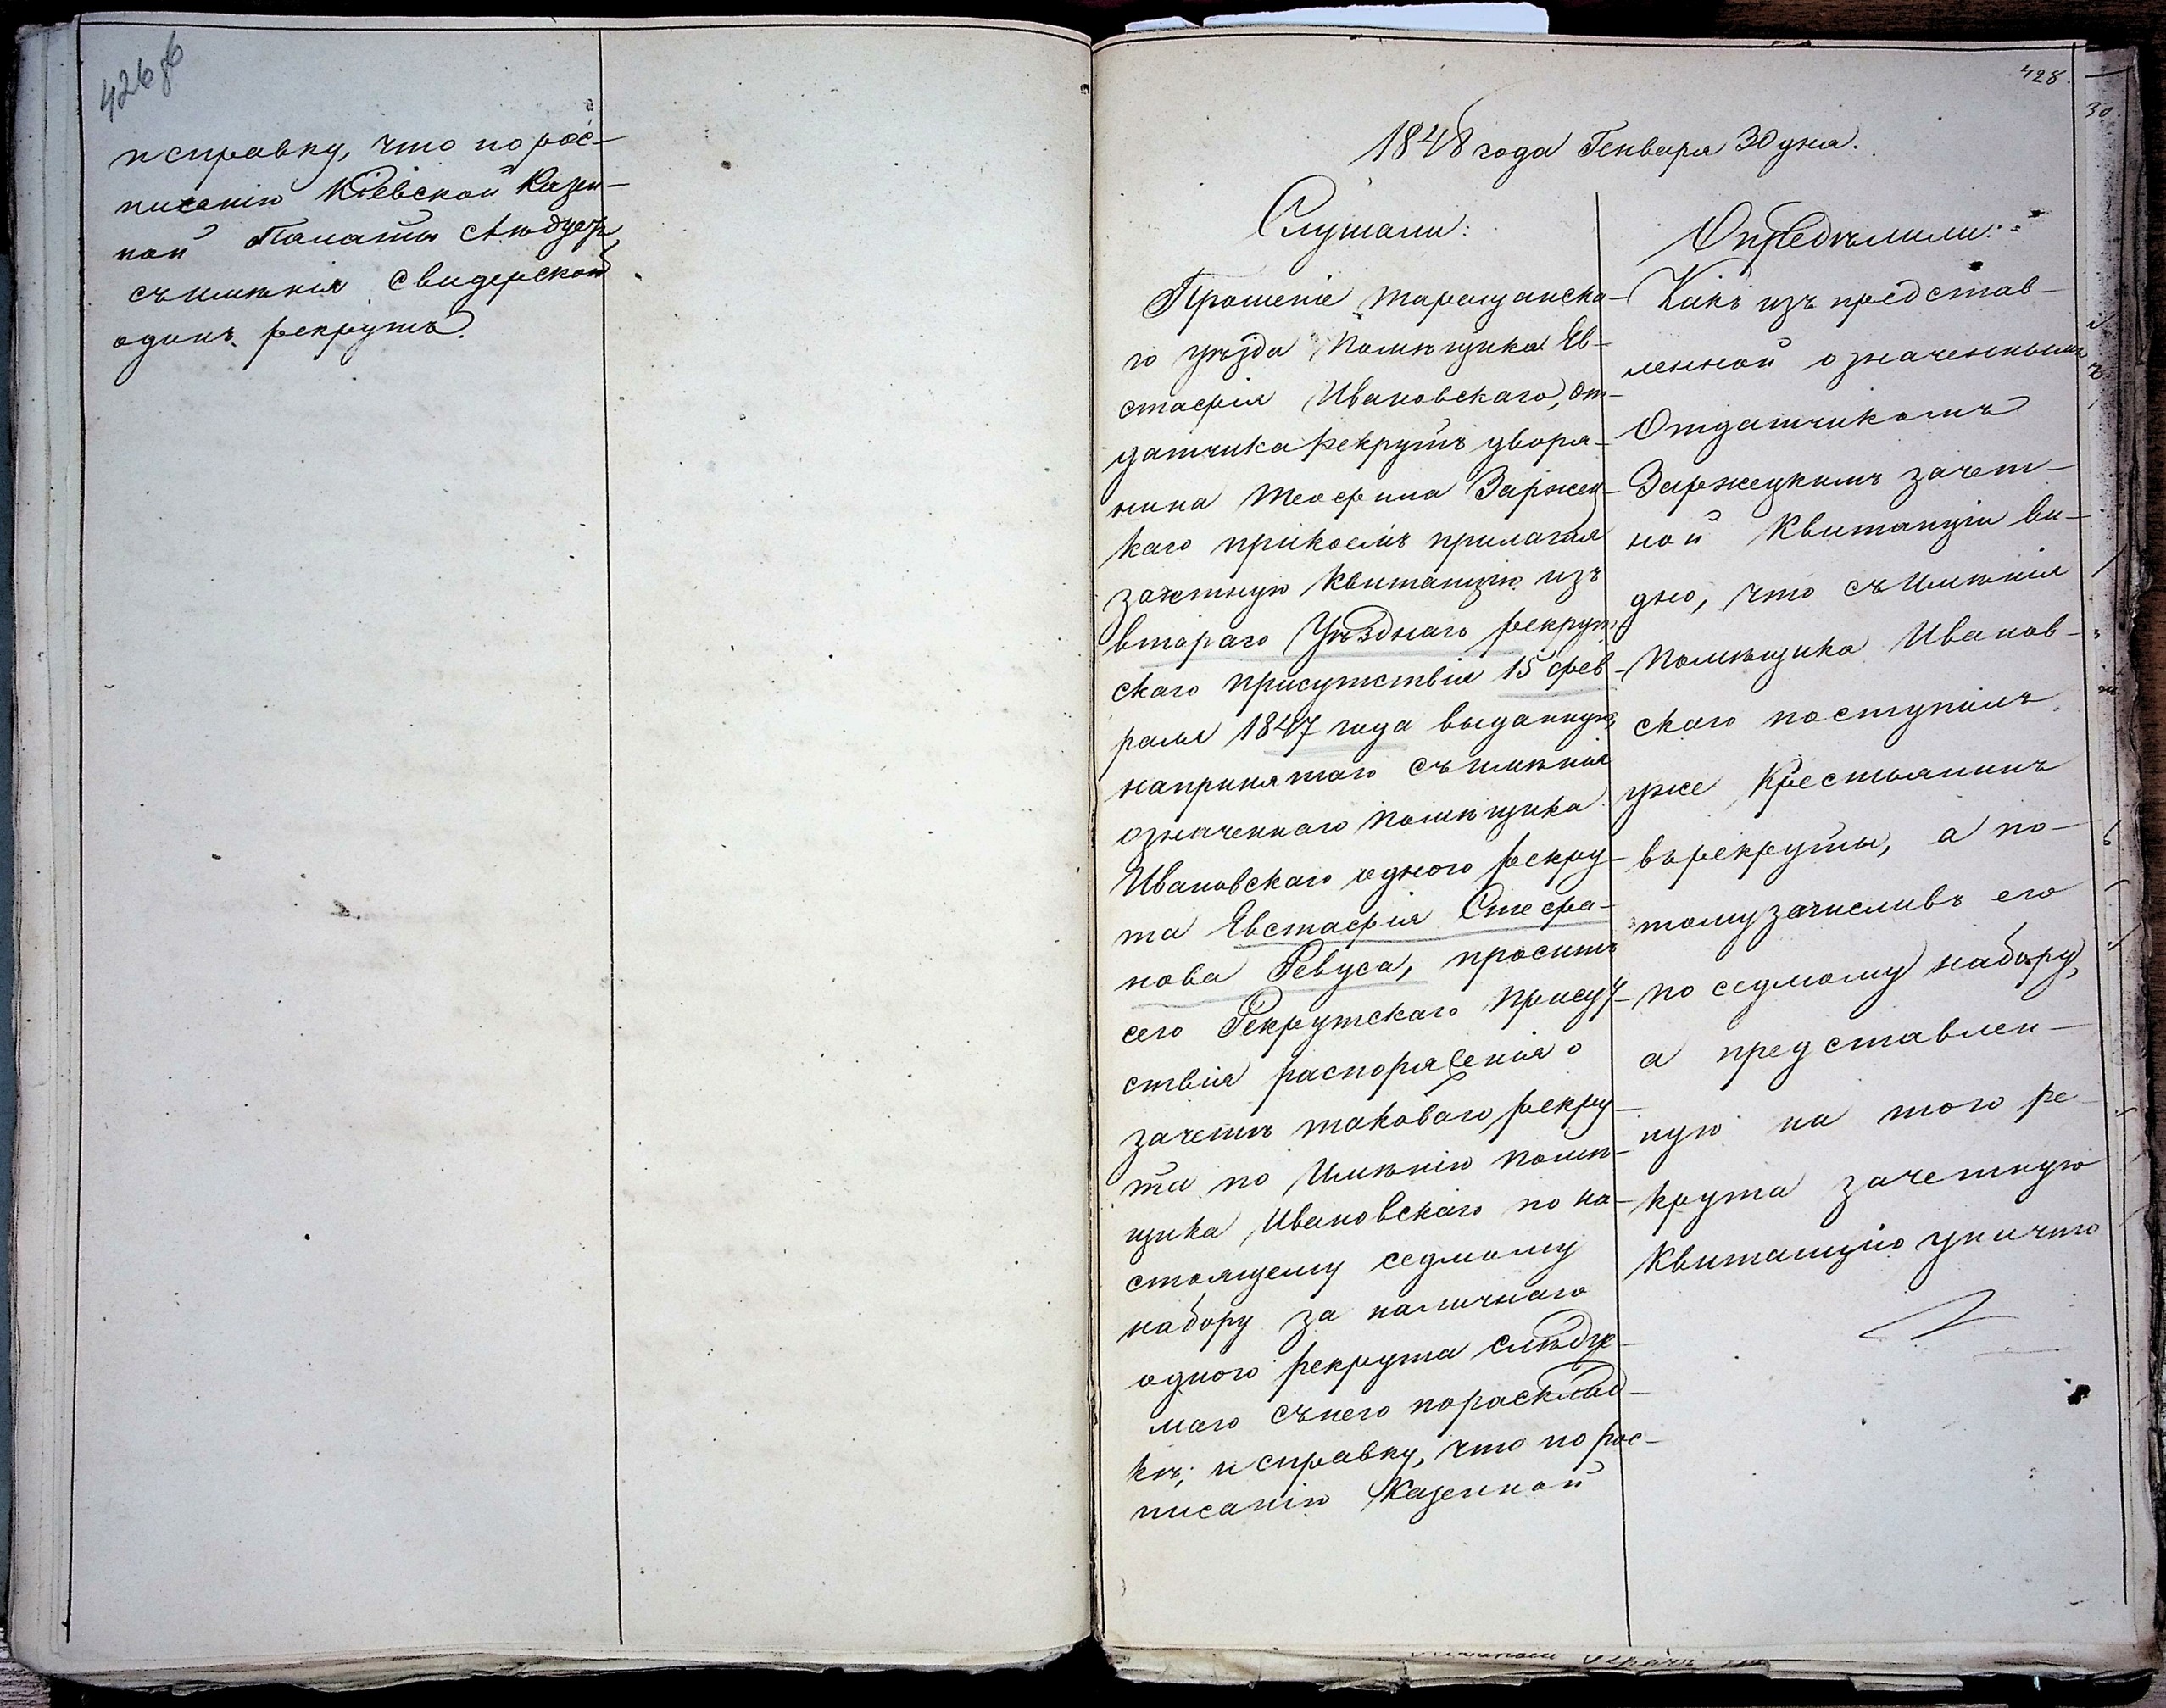 426 об
и справку, что по рос-
писанію Кіевской Казен-
ной Палаты следуетъ
съ имѣнія Свидерской
одинъ рекрутъ.
428.
1848 года Генваря 30 дня.
Слушали:
Прошеніе Таращанска-
го уѣзда Помѣщика Ев-
стафія Ивановскаго, от-
датчика рекрутъ дворя-
нина Теофила Заржец-
каго при коемъ прилагая
зачетную квитанцію изъ
втораго Уѣзднаго рекрут-
скаго присутствія 15 фев-
раля 1847 года выданную,
на принятаго съ имѣнія
означеннаго помѣщика
Ивановскаго одного рекру-
та Евстафія Стефа-
нова Ревуса, проситъ
сего Рекрутскаго Присут-
ствія распоряженія о
зачетѣ таковаго рекру-
та по Имѣнію помѣ-
щика Ивановскаго по на-
стоящему седмому
набору за наличнаго
одного рекрута слѣдуе-
маго съ него по расклад-
кѣ; и справку, что по рос-
писанію Казенной
Опредѣлили:
Какъ изъ представ-
ленной означеннымъ
Отдатчикомъ
Заржецкимъ зачет-
ной Квитанціи ви-
дно, что съ Имѣнія
Помѣщика Иванов-
скаго поступилъ
уже Крестьянинъ
въ рекруты, а по-
тому зачисливъ его
по седмому набору,
а представлен-
ную на того ре-
крута зачетную
Квитанцію уничто
30